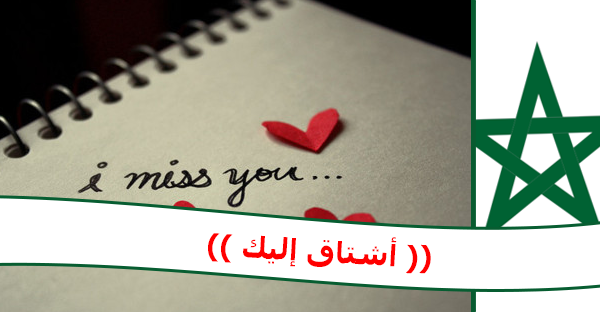 i miss you...
(( أشتاق إليك ))